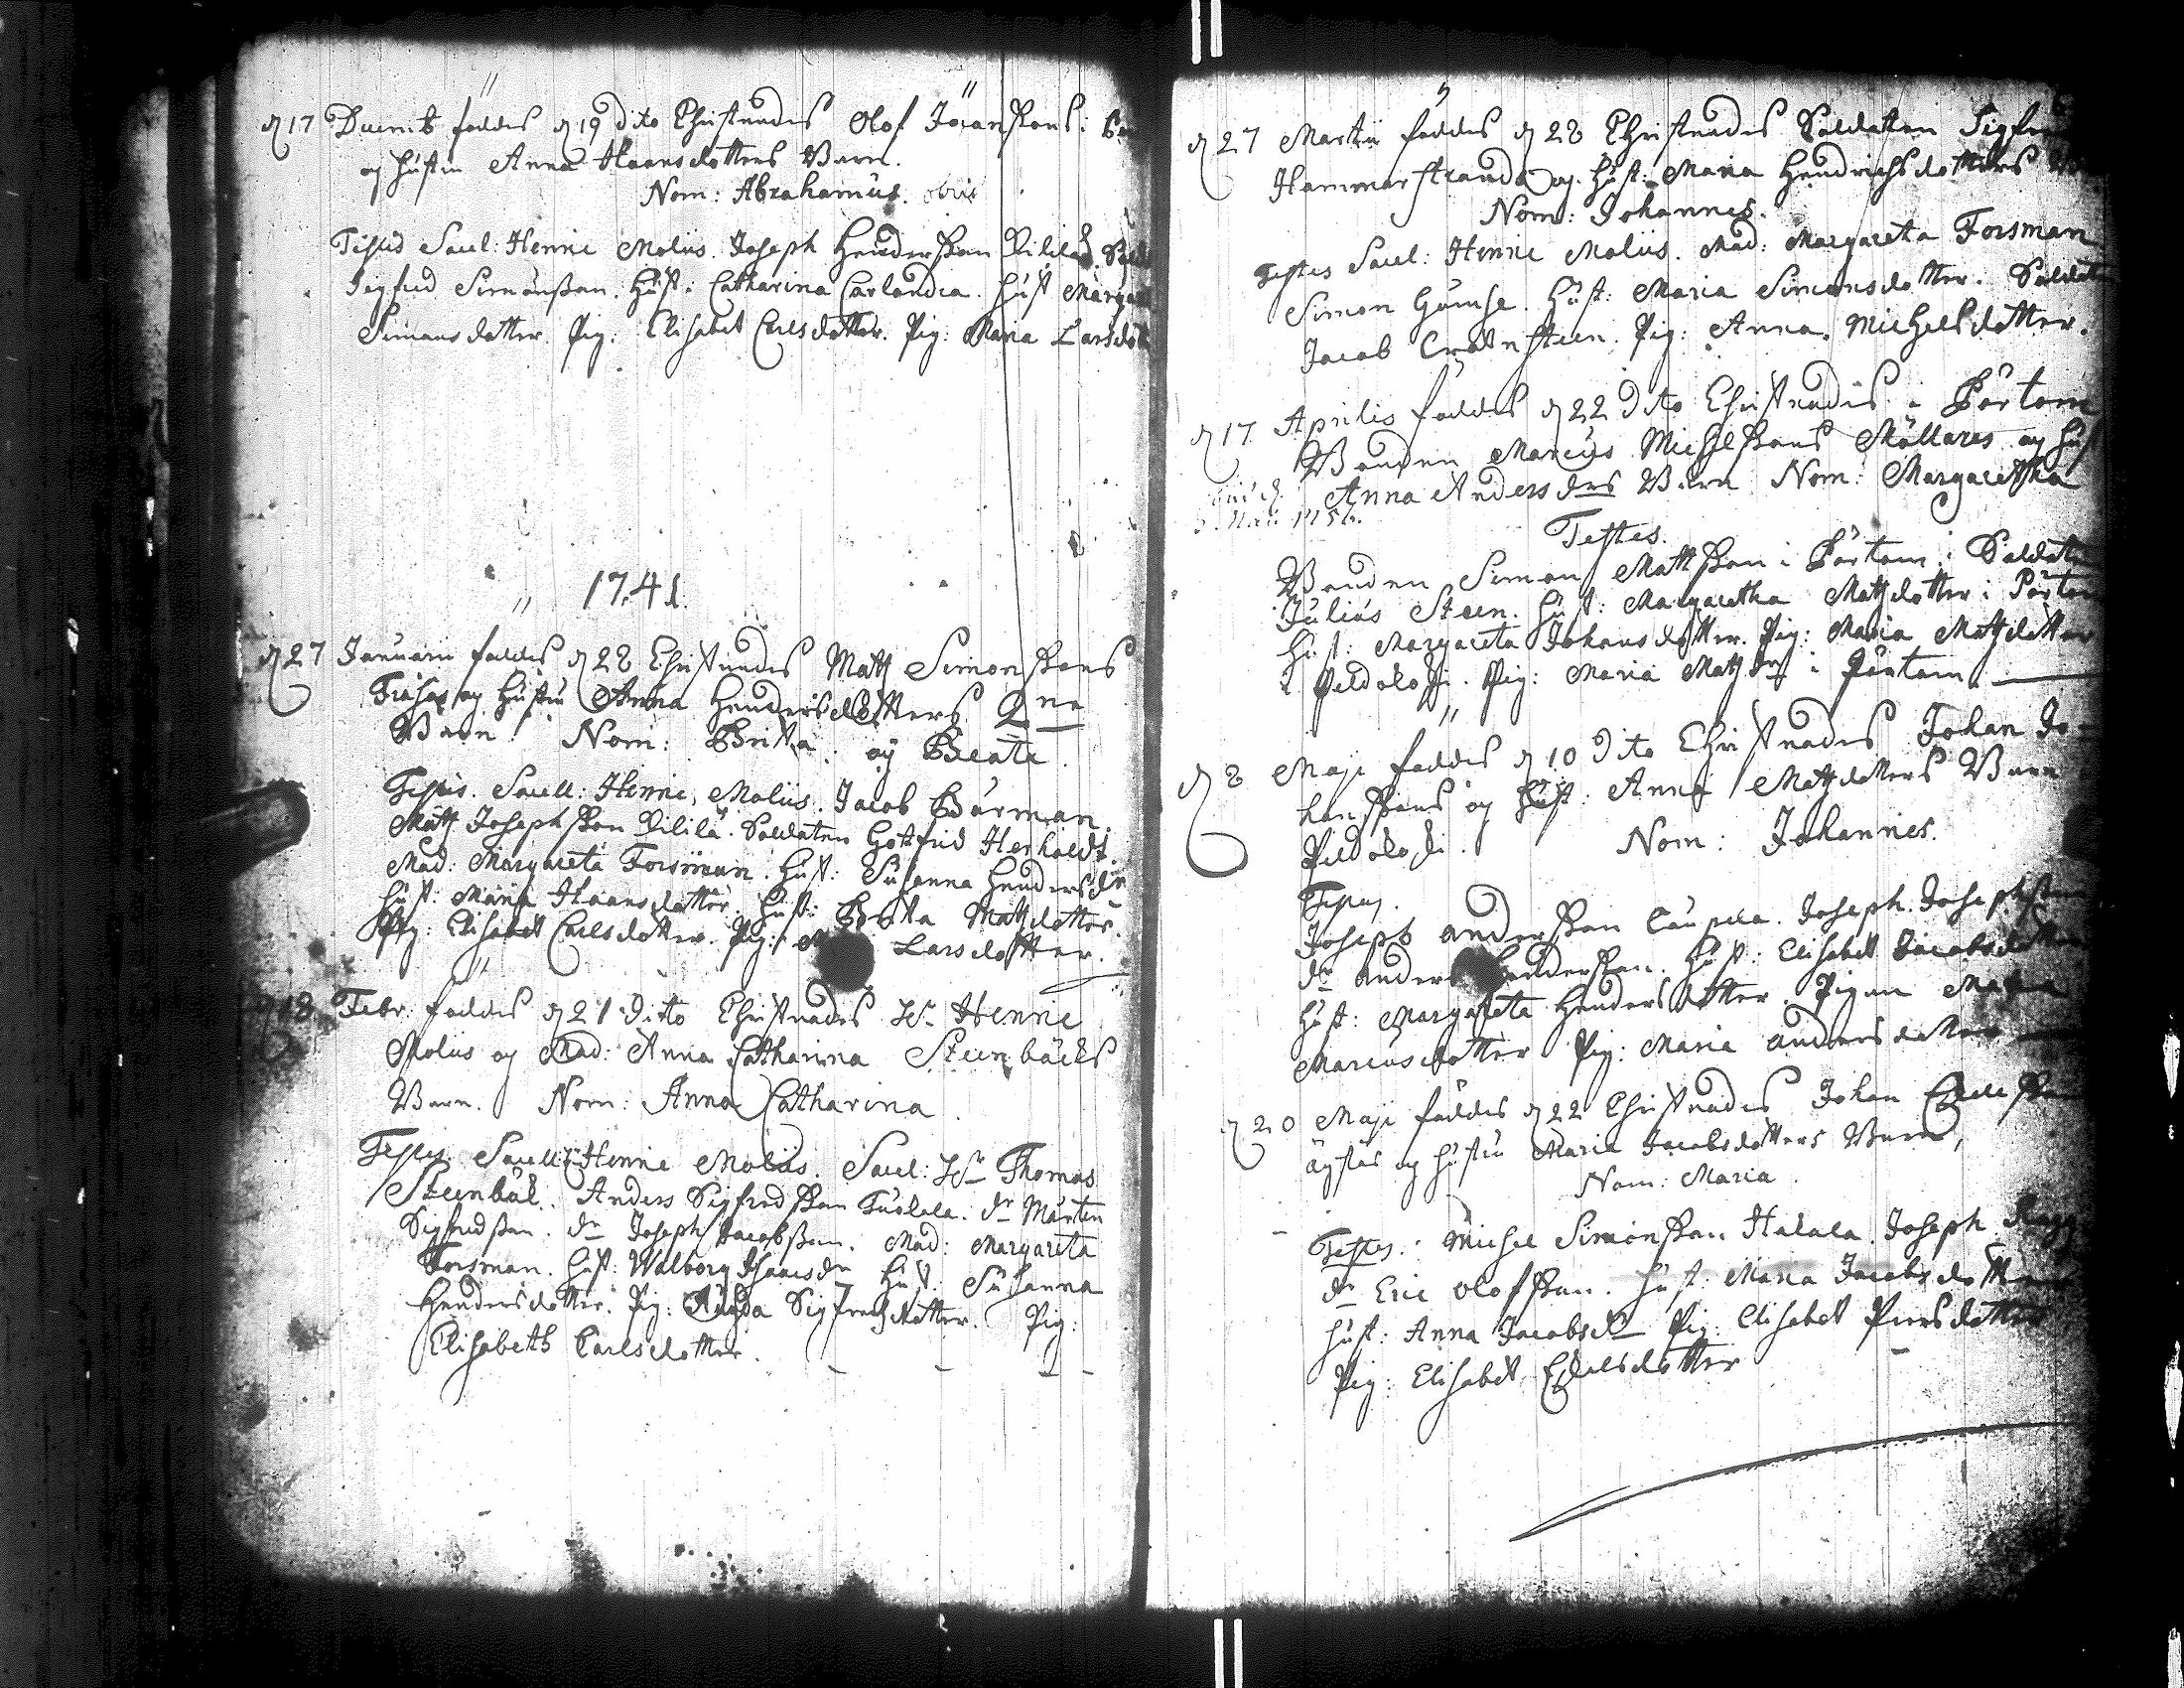 d 17 Decemb föddes d 19 dito Christnades Olof Jöranssons:
og hustru Anna Hansdotters Barn.
Nom: Abrahamus. obiit
Testes Sacel: Henric Molius. Joseph Hendersson Lillilä.
Sigfred Simonsson. Hust: Catharina Carlandra. Hust Margar
Simonsdotter. Pig: Elisabet Carlsdotter. Pig: Maria Larsdott
1741.
d 27 Januarii föddes d 28 Christnades Matz Simonssons
og Hustru Anna Hendersdotters 2ne
Barn. Nom: Brita og Beata.
Testes. Sacell: Henric Molius. Jacob Burman.
Matz Josephsson Lillilä. Soldaten Gottfrid
Mad: Margareta Forsman. Hust: Susanna Hendersdr
Hust: Maria Hansdotter. Hust: Brita Matzdotter.
Pig: Elisabet Carlsdotter. Pig: Larsdotter.
d 18 Febr. föddes d 21 dito Christnades Hr Henric
Molius og Mad: Anna Catharina Steenbäcks
Barn. Nom: Anna Catharina.
Testes Sacell: Henric Molius. Sacel: Hr Thomas
Steenbäck. Anders Sigfredsson dr Mårten
Sigfredsson. dr Joseph Jacobsson. Mad: Margareta
Forsman. Hust: Walborg Isaacsdr Hust: Susanna
Hendersdotter. Pig: Sigfredsdotter. Pig:
Elisabeth Carlsdotter.
d 27 Martii föddes d 28 Christnades Soldaten Sigfre
Hammarstrands og Hust: Maria Hendrichsdotters
Nom: Johannes.
Testes Sacel: Henric Molius. Mad: Margareta Forsman
Simon Hust: Maria Simonsdotter. Soldat
Jacob Pig: Anna Michelsdotter.
d 17 Aprilis föddes d 22 dito Christnades i Pörtom
Bonden Marcus Michelssons Mållares og Hust
Anna Andersdrs Barn Nom: Margaretha
1756.
Testes.
Bonden Simon Mattsson i Pörtom. Soldaten
Julius Steen. Hust: Margaretha Matzdotter i Pörtom
Hust: Margareta Johansdotter. Pig: Maria Matzdotter
i Peldoloski. Pig: Maria Matzdr i Pörtom.
d 8 Maji föddes d 10 dito Christnades Johan Jo-
hanssons og Hust: Anna Matzdotters Barn
Peldoloski. Nom: Johannes.
Testes.
Joseph Andersson Caupila. Joseph Josephsson
dr Anders Hendersson. Hust: Elisabet Jacobsdotter
Hust: Margareta Hendersdotter. Pigan Maria
Marcusdotter Pig: Maria Andersdotter
d 20 Maji föddes d 22 Christnades Johan
og hustru Maria Jacobsdotters Barn,
Nom: Maria.
Testes: Michel Simonsson Hakala. Joseph
dr Eric Olofsson. Hust: Maria Jacobsdotter
Hust: Anna Jacobsdr Pig: Elisabet Piersdotter
Pig: Elisabet